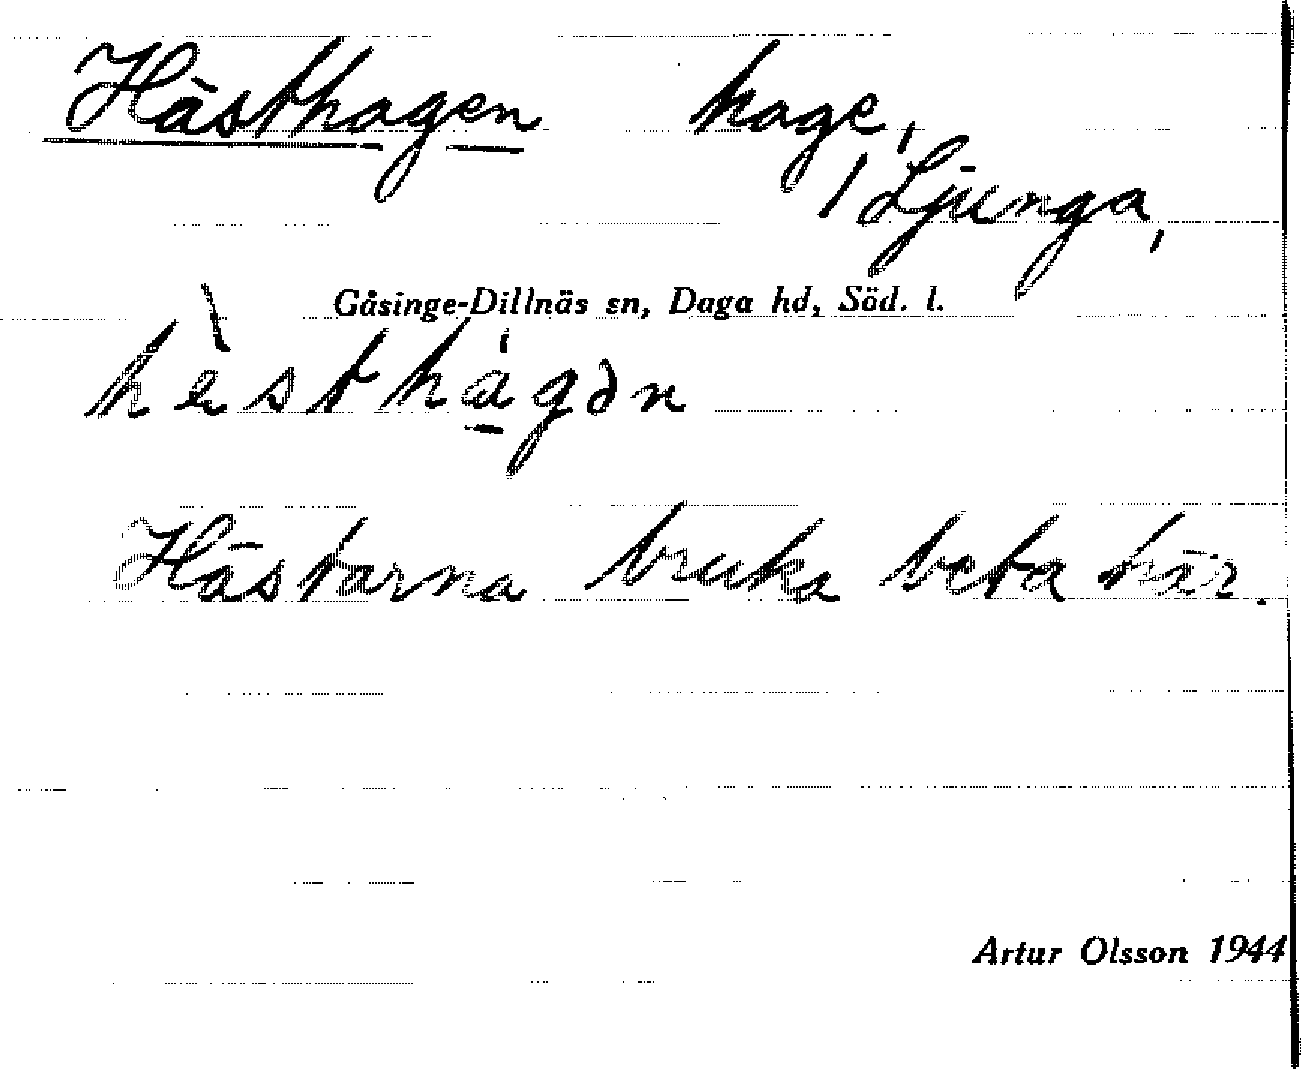 Hästhagen hage,
/ Ljunga,
Gåsinge-Dillnäs sn, Daga hd, Söd. l.
hὲsthágən
Hästarna bruka beta här.
Artur Olsson 1944